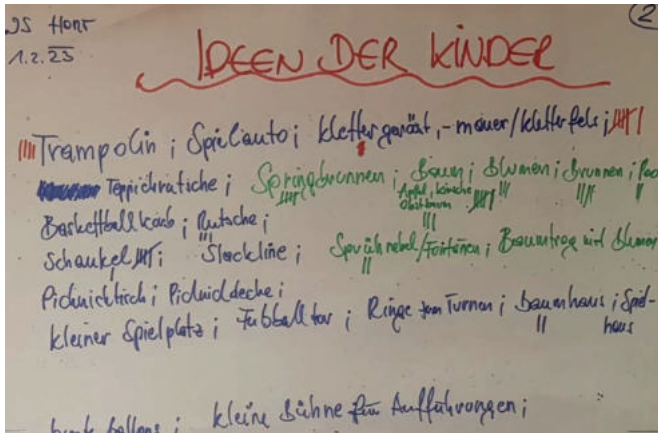 2
1.2.23
IDEEN DER KINDER
Trampolin ; Spielauto ; Klettergerät, -mauer/Kletterfels ;
Teppichrutsche ; Springbrunnen ; Baum ; Blumen ; Brunnen ;
Apfel, Kirsche
Obstbaum
Baskettballkorb ; Rutsche ;
Schaukel ; Slackline ; Sprühnebel/Fontänen ; mit Blumen
Picknicktisch ; Picknickdecke ;
kleiner Spielplatz ; Fußballtor ; Ringe zum Turnen ; Baumhaus ; Spiel-
haus
kleine Bühne für Aufführungen ;